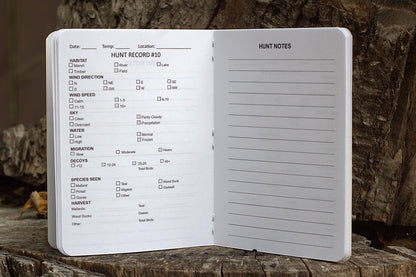 Date: ______ Temp: ______ Location: ____________
HUNT RECORD #10
HABITAT
Marsh River Lake
Timber Field
WIND DIRECTION
N NE E SE
S SW W NW
WIND SPEED
Calm 1-5 6-10
11-15 15+
SKY
Clear Partly Cloudy
Overcast Precipitation
WATER
Low Normal
High Frozen
MIGRATION
Slow Moderate Heavy
DECOYS
<12 12-24 25-35 40+
Total Birds
SPECIES SEEN
Mallard Teal Wood Duck
Pintail Wigeon Gadwall
Goose Other
HARVEST
Mallards: Teal:
Wood Ducks: Geese:
Other: Total Birds:
HUNT NOTES